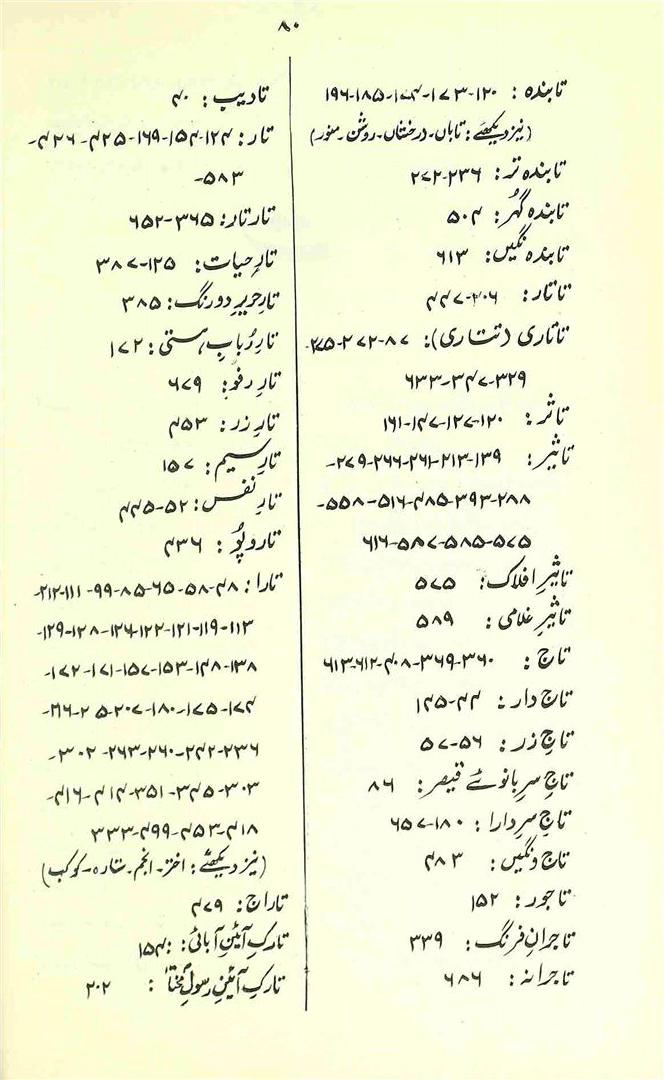 ۸۰
تابندہ : ۱۲۰-۱۷۳-۱۷۴-۱۸۵-۱۹۶
(نیز دیکھئے: تاباں۔درخشاں۔روشن۔منور)
تابندہ تر: ۲۳۶-۲۷۲
تابندہ گہُر: ۵۰۴
تابندہ نگیں: ۶۱۳
تاتار: ۲۰۶-۴۴۷
تاتاری (تتاری): ۸۷-۲۷۲-۲۷۵-
۳۲۹-۳۴۷-۶۳۳
تاثر: ۱۲۰-۱۲۷-۱۴۷-۱۶۱
تاثیر: ۱۳۹-۲۱۳-۲۶۱-۲۶۶-۲۷۹-
۲۸۸-۳۹۳-۴۸۵-۵۱۶-۵۵۸-
۵۷۵-۵۸۵-۵۸۷-۶۱۶
تاثیرِ افلاک: ۵۷۵
تاثیرِ غلامی: ۵۸۹
تاج: ۳۶۰-۳۶۹-۴۰۸-۶۱۲-۶۱۳
تاج دار: ۴۴-۱۴۵
تاجِ زر: ۵۶-۵۷
تاجِ سرِ بانوئے قیصر: ۸۶
تاجِ سرِ دارا: ۱۸۰-۶۵۷
تاج و نگیں: ۴۸۳
تاجور: ۱۵۲
تاجرانِ فرنگ: ۳۳۹
تاجرانہ: ۶۸۶
تادیب: ۴۰
تار: ۱۲۴-۱۵۴-۱۶۹-۴۲۵-۴۲۶-
۵۸۳-
تار تار: ۳۶۵-۶۵۲
تارِ حیات: ۱۲۵-۳۸۷
تارِ حریرِ دو رنگ: ۳۸۵
تارِ رُبابِ ہستی: ۱۷۲
تارِ رفو: ۶۷۹
تارِ زر: ۴۵۳
تارِ سیم: ۱۵۷
تارِ نفس: ۵۲-۴۴۵
تار و پُو: ۴۳۶
تارا: ۴۸-۵۸-۶۵-۸۵-۹۹-۱۱۱-۱۱۲-
۱۱۳-۱۱۹-۱۲۱-۱۲۲-۱۲۶-۱۲۸-۱۲۹-
۱۳۸-۱۴۸-۱۵۳-۱۵۷-۱۷۱-۱۷۲-
۱۷۴-۱۷۵-۱۸۰-۲۰۷-۲۰۵-۲۱۶-
۲۳۶-۲۴۲-۲۶۰-۲۶۳-۳۰۲-
۳۰۳-۳۴۵-۳۵۱-۴۱۴-۴۱۶-
۴۱۸-۴۵۳-۴۹۹-۳۳۳
(نیز دیکھئے: اختر۔انجم۔ستارہ۔کوکب)
تاراج: ۴۷۹
تارکِ آئینِ آبائی: ۱۵۴
تارکِ آئینِ رسولِ مختارؐ: ۲۰۲